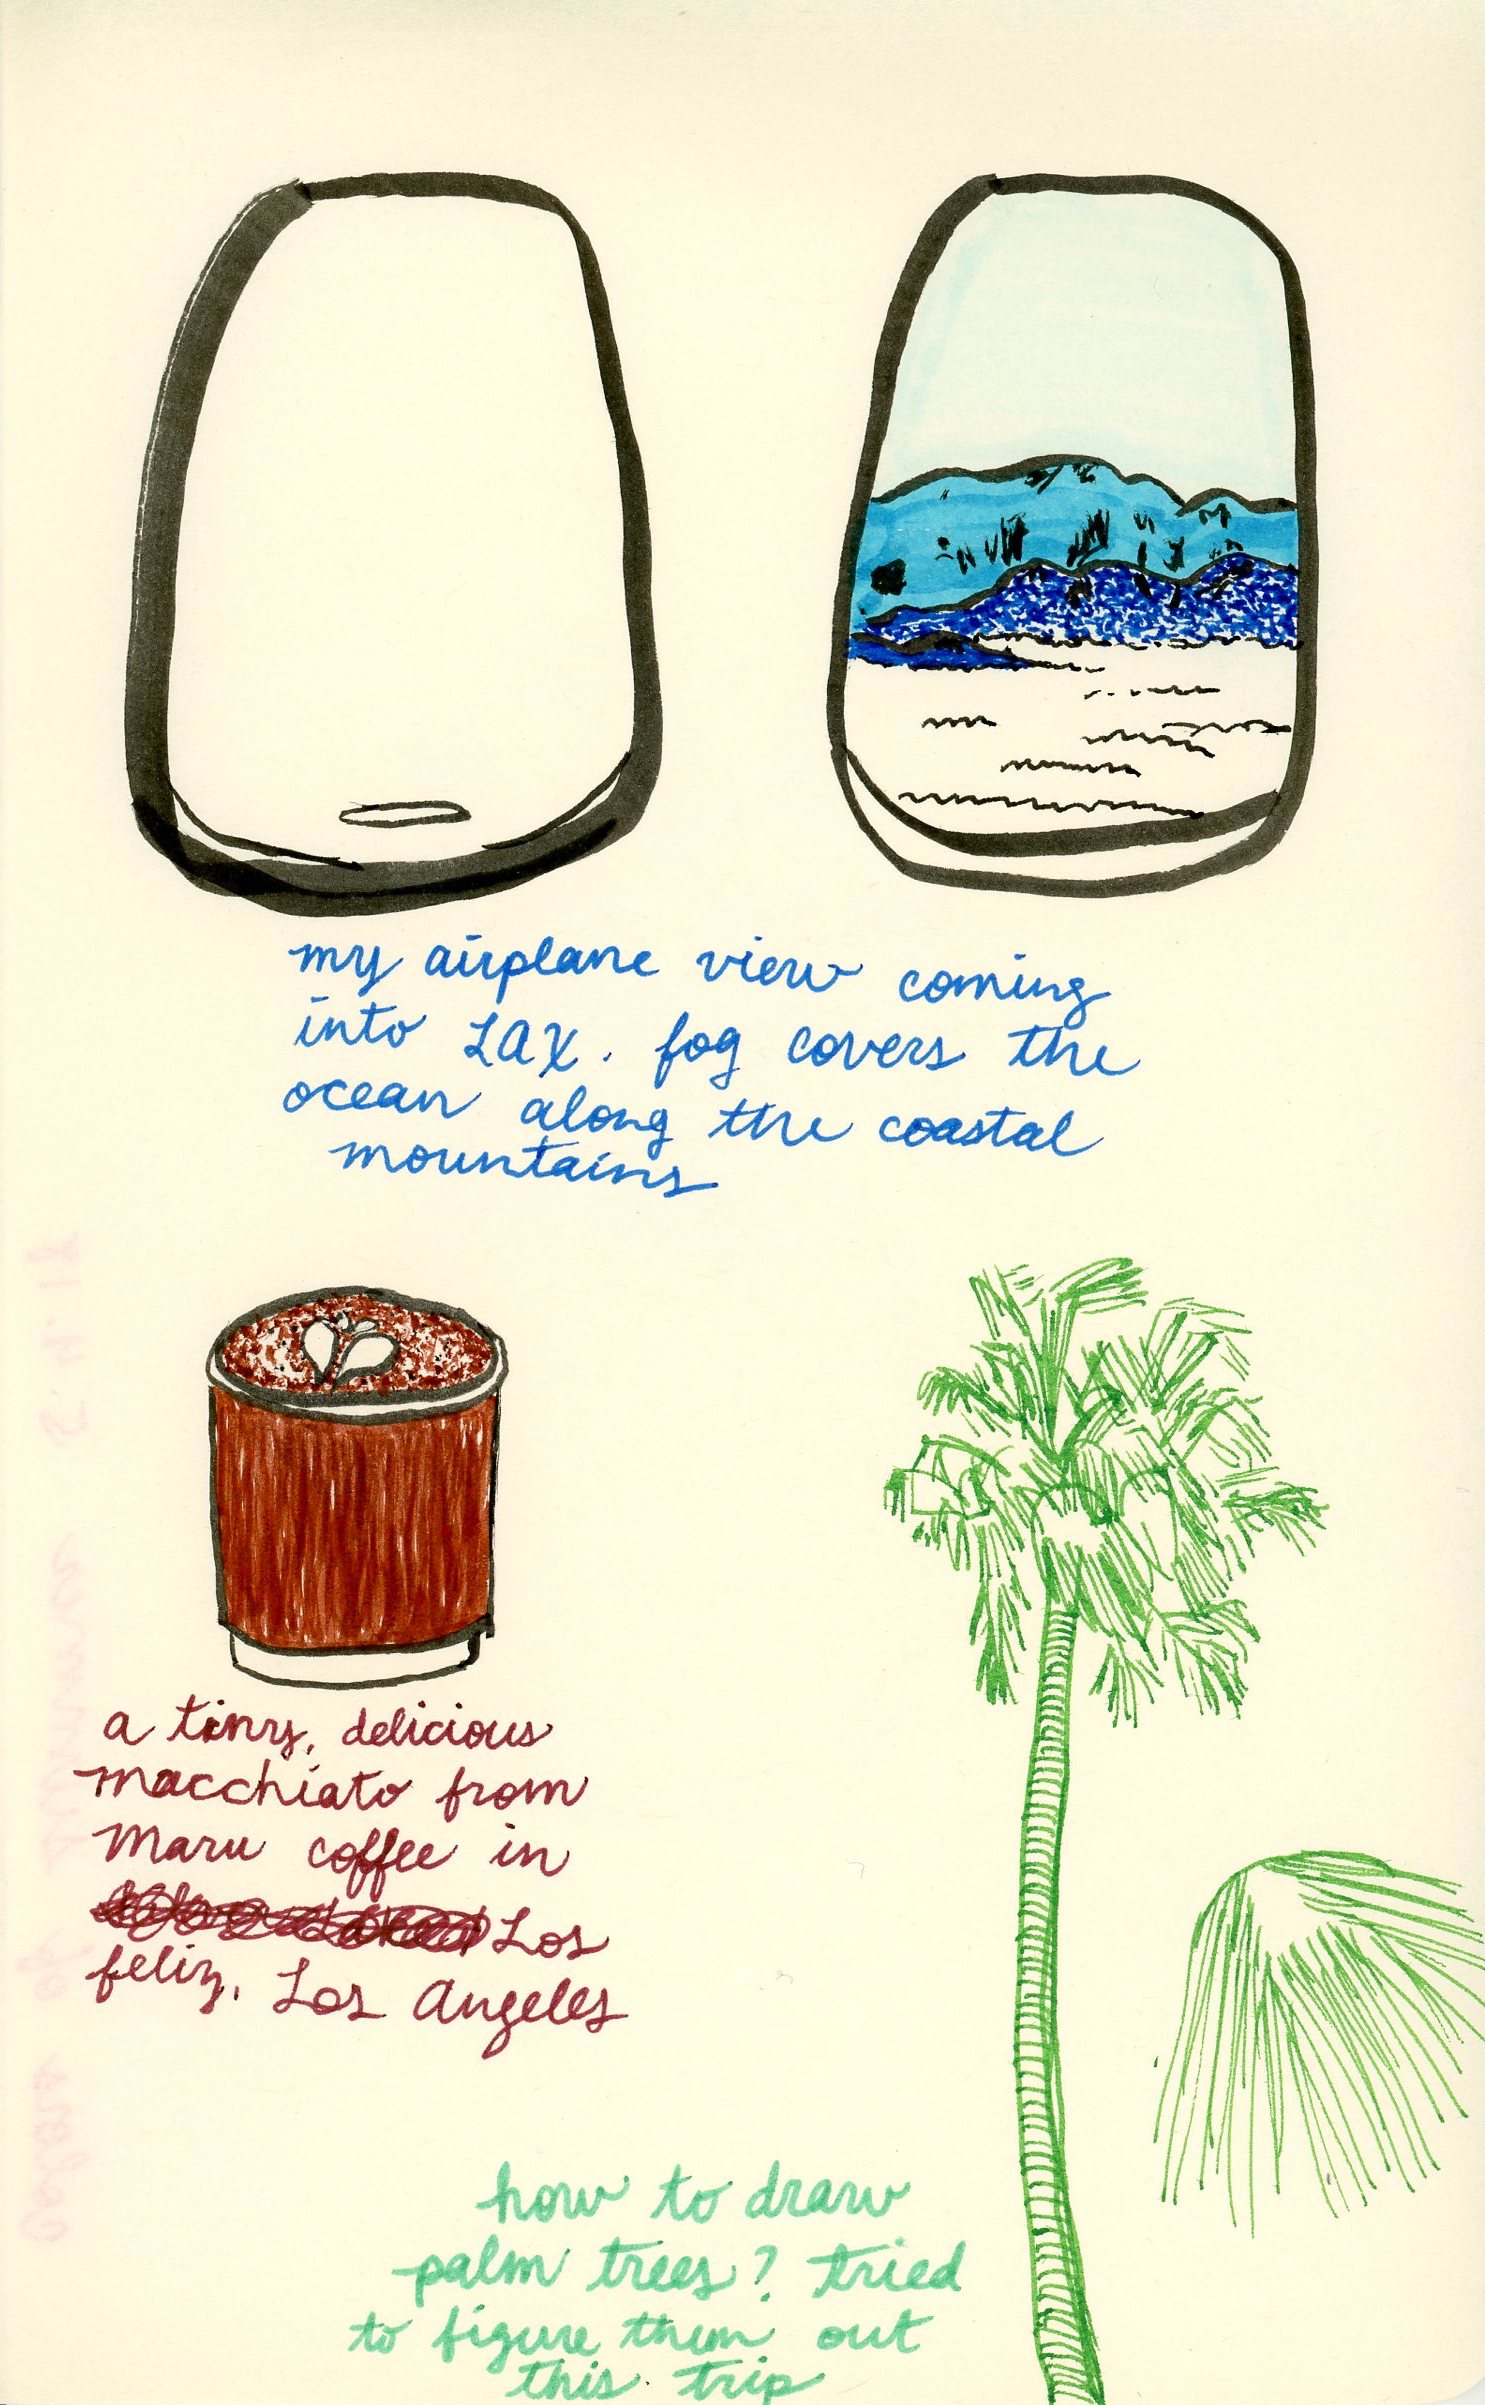 my airplane view coming
into LAX. fog covers the
ocean along the coastal
mountains
a tiny, delicious
macchiato from
Maru coffee in
Los
feliz, Los Angeles
how to draw
palm trees? tried
to figure them out
this trip